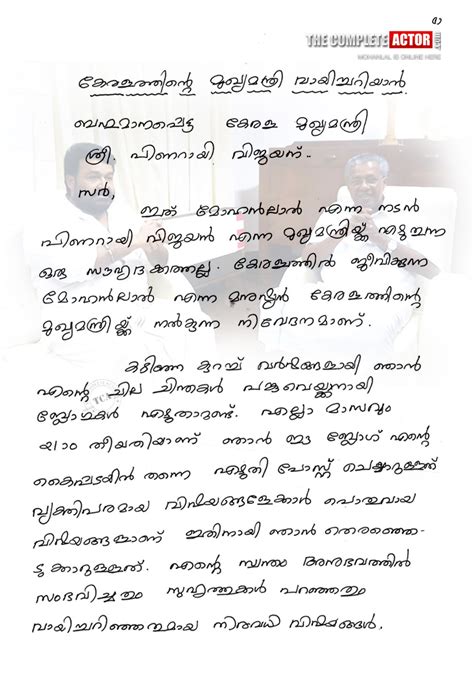 THE COMPLETE ACTOR .COM
MOHANLAL IS ONLINE HERE
കേരളത്തിന്റെ മുഖ്യമന്ത്രി വായിച്ചറിയാൻ.
ബഹുമാനപ്പെട്ട കേരള മുഖ്യമന്ത്രി
ശ്രീ. പിണറായി വിജയന്..
സർ,
ഇത് മോഹൻലാൽ എന്ന നടൻ
പിണറായി വിജയൻ എന്ന മുഖ്യമന്ത്രിയ്ക്ക് എഴുതുന്ന
ഒരു സൗഹൃദക്കത്തല്ല. കേരളത്തിൽ ജീവിക്കുന്ന
മോഹൻലാൽ എന്ന മനുഷ്യൻ കേരളത്തിന്റെ
മുഖ്യമന്ത്രിയ്ക്ക് നൽകുന്ന നിവേദനമാണ്.
കഴിഞ്ഞ കുറച്ച് വർഷങ്ങളായി ഞാൻ
എന്റെ ചില ചിന്തകൾ പങ്കുവെയ്ക്കാനായി
ബ്ലോഗുകൾ എഴുതാറുണ്ട്. എല്ലാ മാസവും
21ാം തീയതിയാണ് ഞാൻ ഈ ബ്ലോഗ് എന്റെ
കൈപ്പടയിൽ തന്നെ എഴുതി പോസ്റ്റ് ചെയ്യാറുള്ളത്
വ്യക്തിപരമായ വിഷയങ്ങളേക്കാൾ പൊതുവായ
വിഷയങ്ങളാണ് ഇതിനായി ഞാൻ തെരഞ്ഞെ-
ടുക്കാറുള്ളത്. എന്റെ സ്വന്തം അനുഭവത്തിൽ
സംഭവിച്ചതും സുഹൃത്തുക്കൾ പറഞ്ഞതും
വായിച്ചറിഞ്ഞതുമായ നിരവധി വിഷയങ്ങൾ.